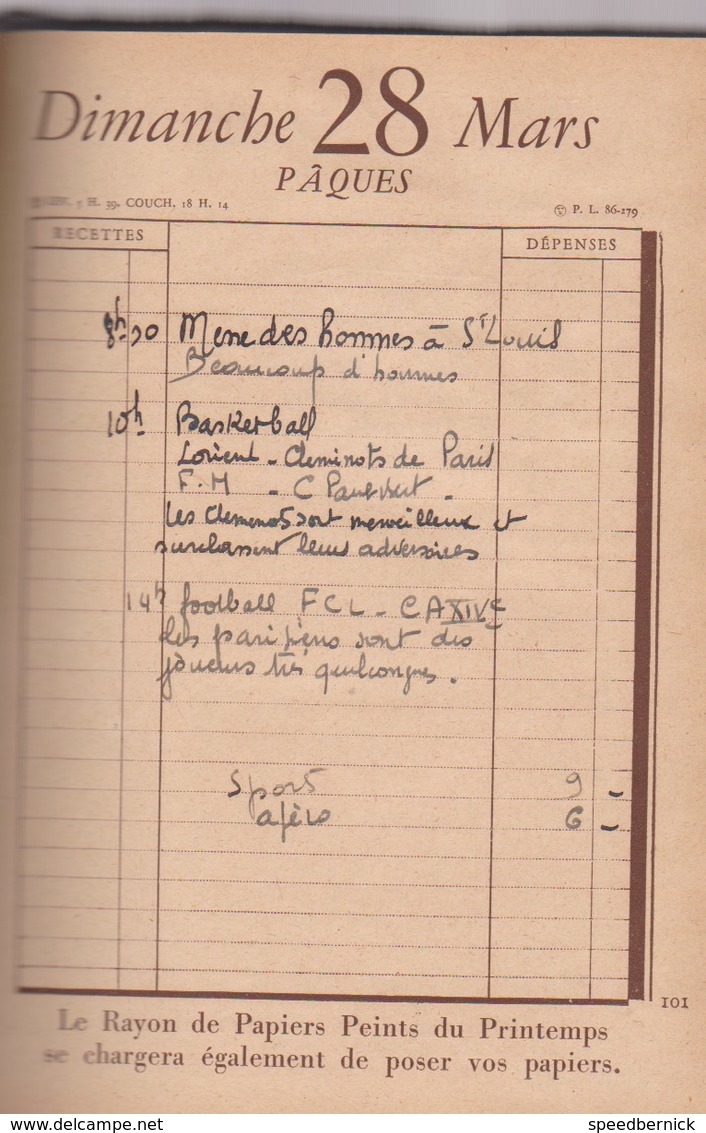 Dimanche 28 Mars
PÂQUES
5 H. 39, COUCH. 18 H. 14
P. L. 86-279
RECETTES
DÉPENSES
8h30 Messe des hommes à St Louis
Beaucoup d'hommes
10h Basketball
Lorient - Cheminots de Paris
F. M - C
Les Cheminots sont merveilleux et
surclassent leurs adversaires
14h football FCL - CAXIVe
Les parisiens sont des
joueurs très quelconques.
Sport 9 -
apéro 6 -
101
Le Rayon de Papiers Peints du Printemps
se chargera également de poser vos papiers.
delcampe.net
speedbernick